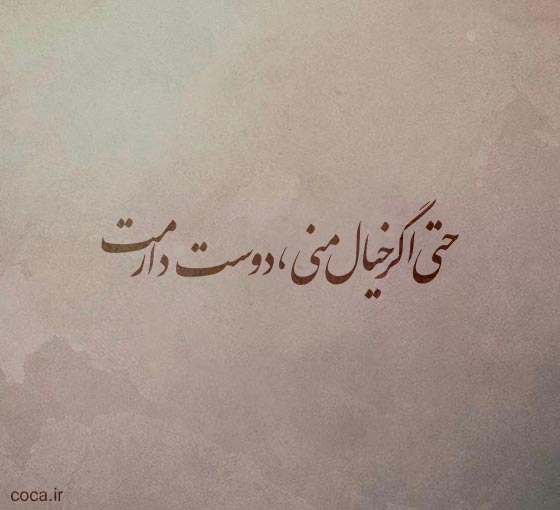 حتی اگر خیال منی، دوست دارمت
coca.ir